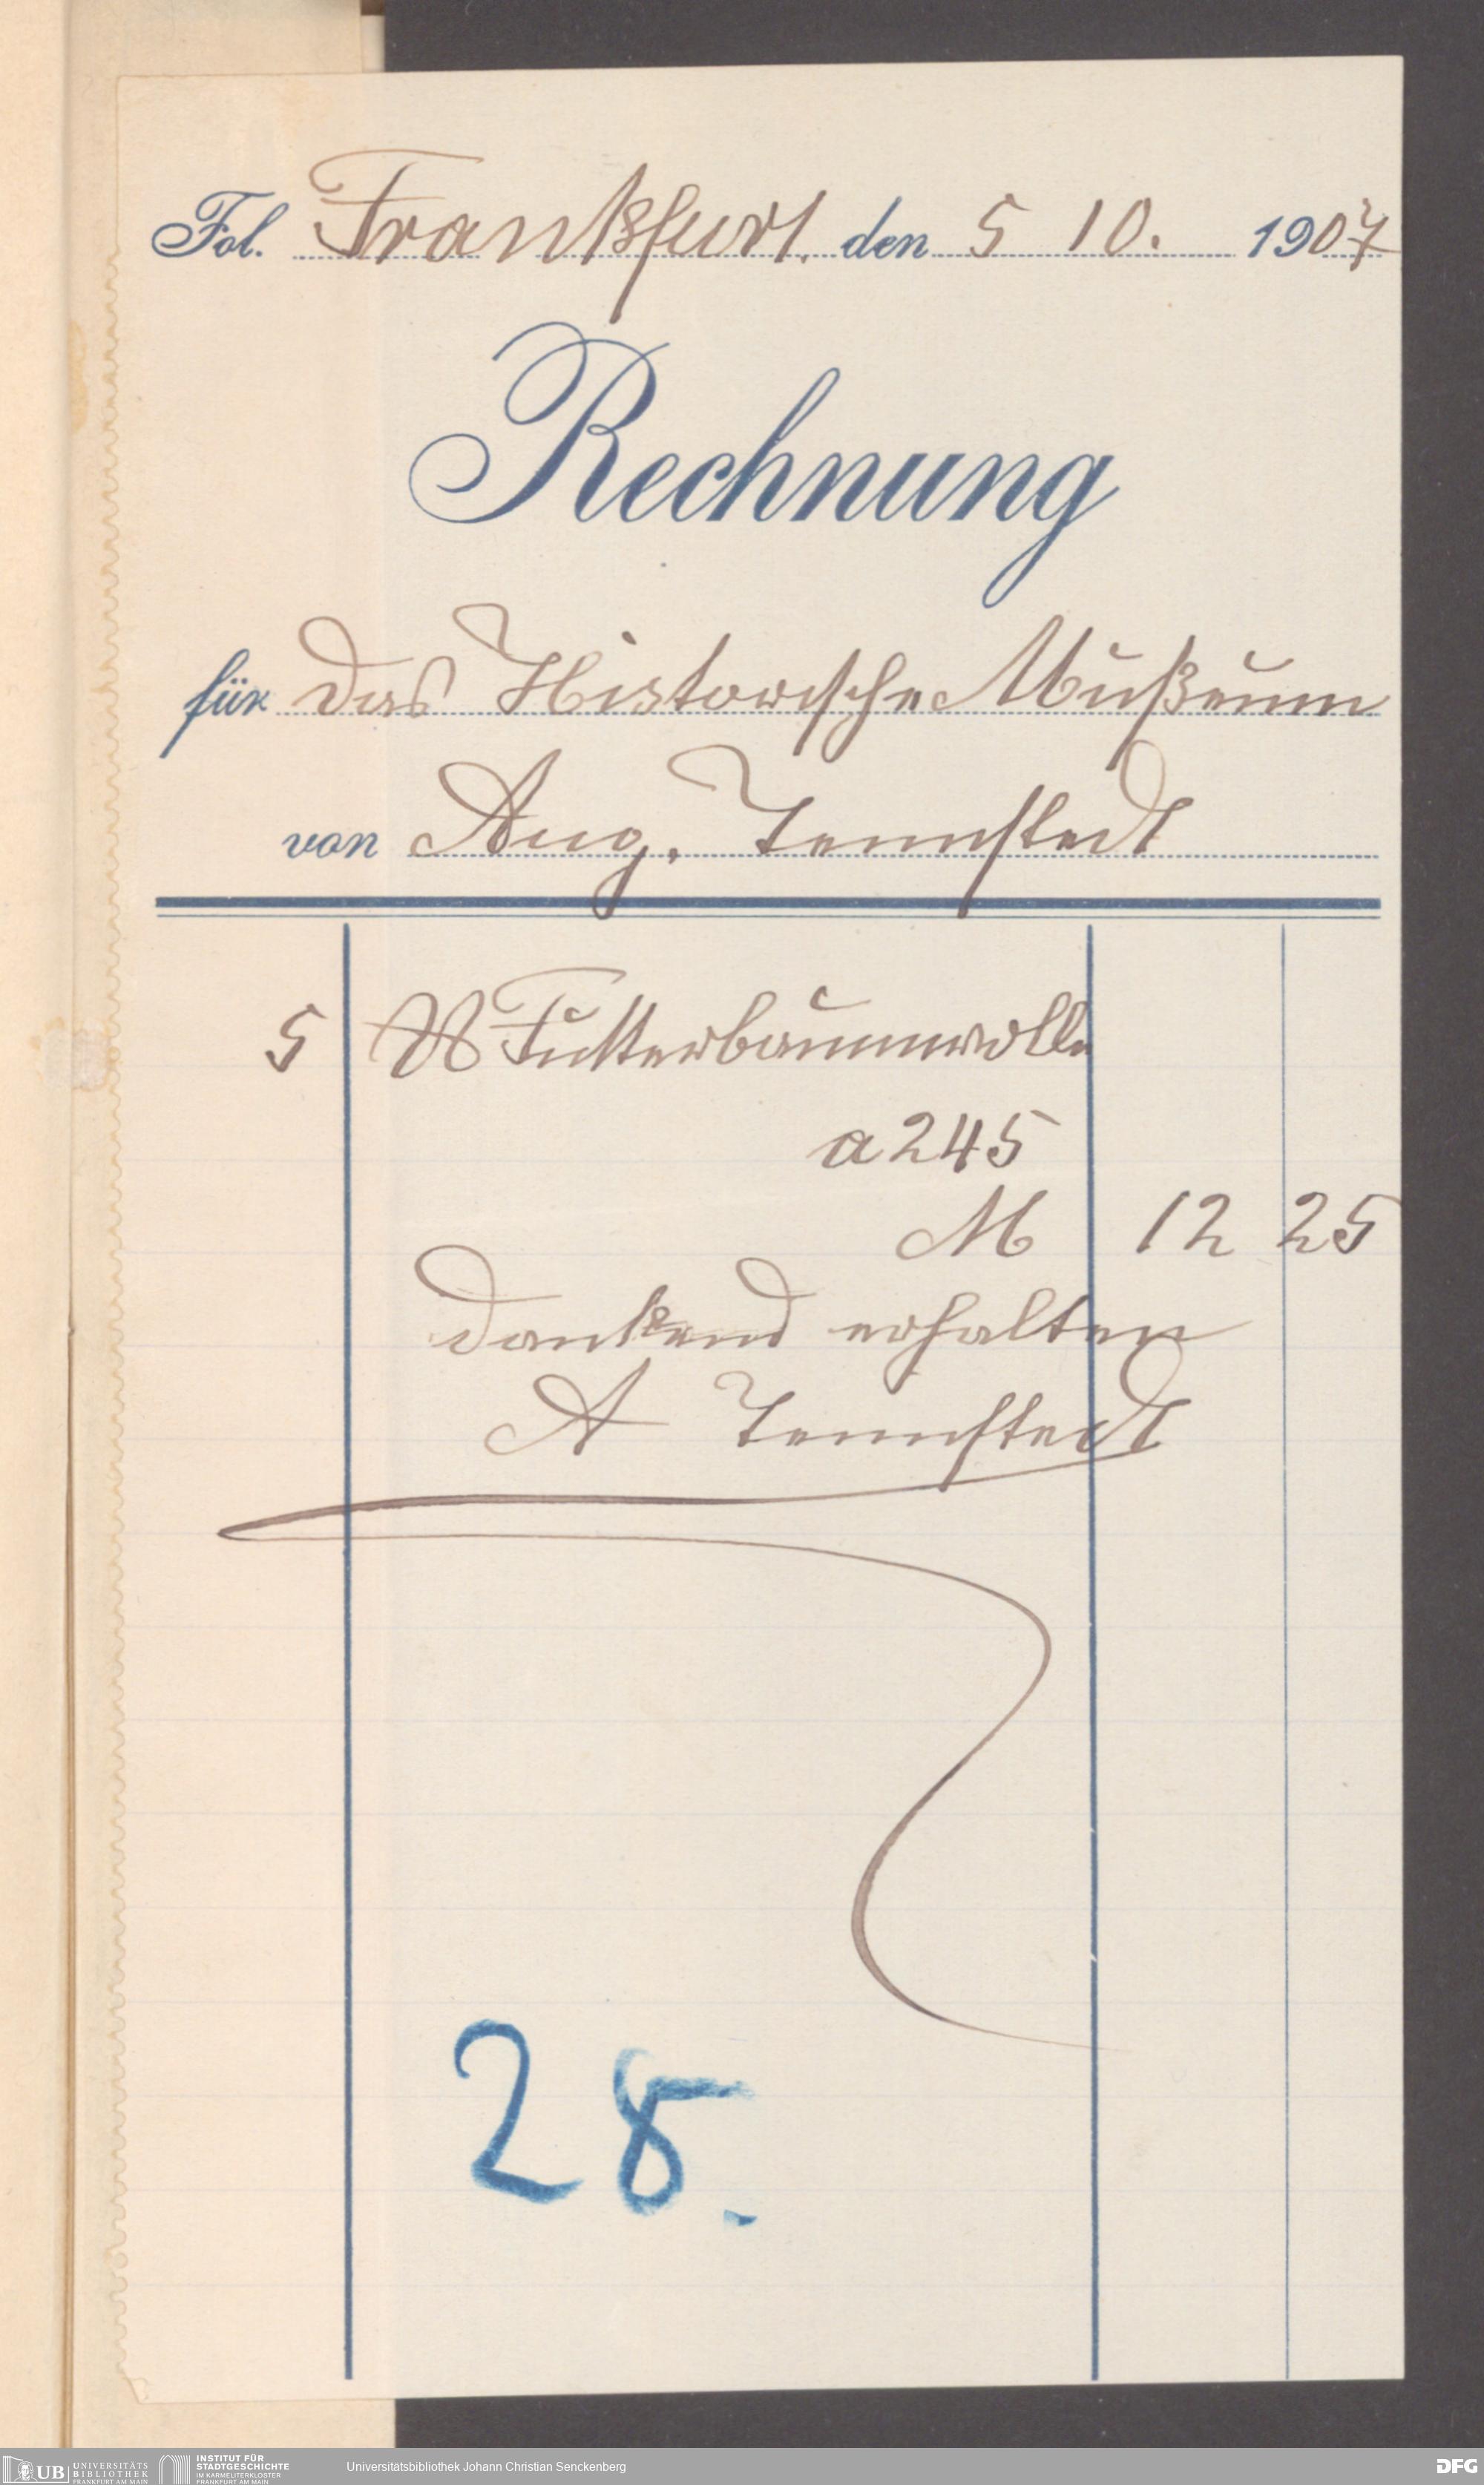 Fol. Frankfurt. den 5 10. 1907
Rechnung
für das Historische Mußeum
von Aug. Tennstedt
5 ℔ Futterbaumwolle
a 245
M 12 25
Dankend erhalten
A Tennstedt
28.
UB UNIVERSITÄTS BIBLIOTHEK FRANKFURT AM MAIN
INSTITUT FÜR STADTGESCHICHTE IM KARMELITERKLOSTER FRANKFURT AM MAIN
Universitätsbibliothek Johann Christian Senckenberg
DFG